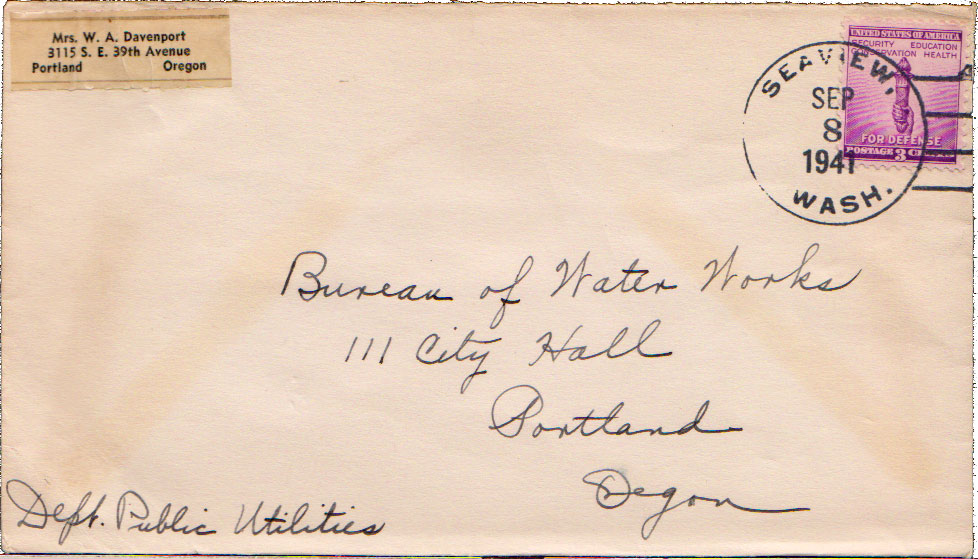 Mrs. W. A. Davenport
3115 S. E. 39th Avenue
Portland Oregon
SEAVIEW,
SEP
8
1941
WASH.
UNITED STATES OF AMERICA
SECURITY EDUCATION
CONSERVATION HEALTH
FOR DEFENSE
POSTAGE 3 CENTS
Bureau of Water Works
111 City Hall
Portland
Oegon
Dept. Public Utilities